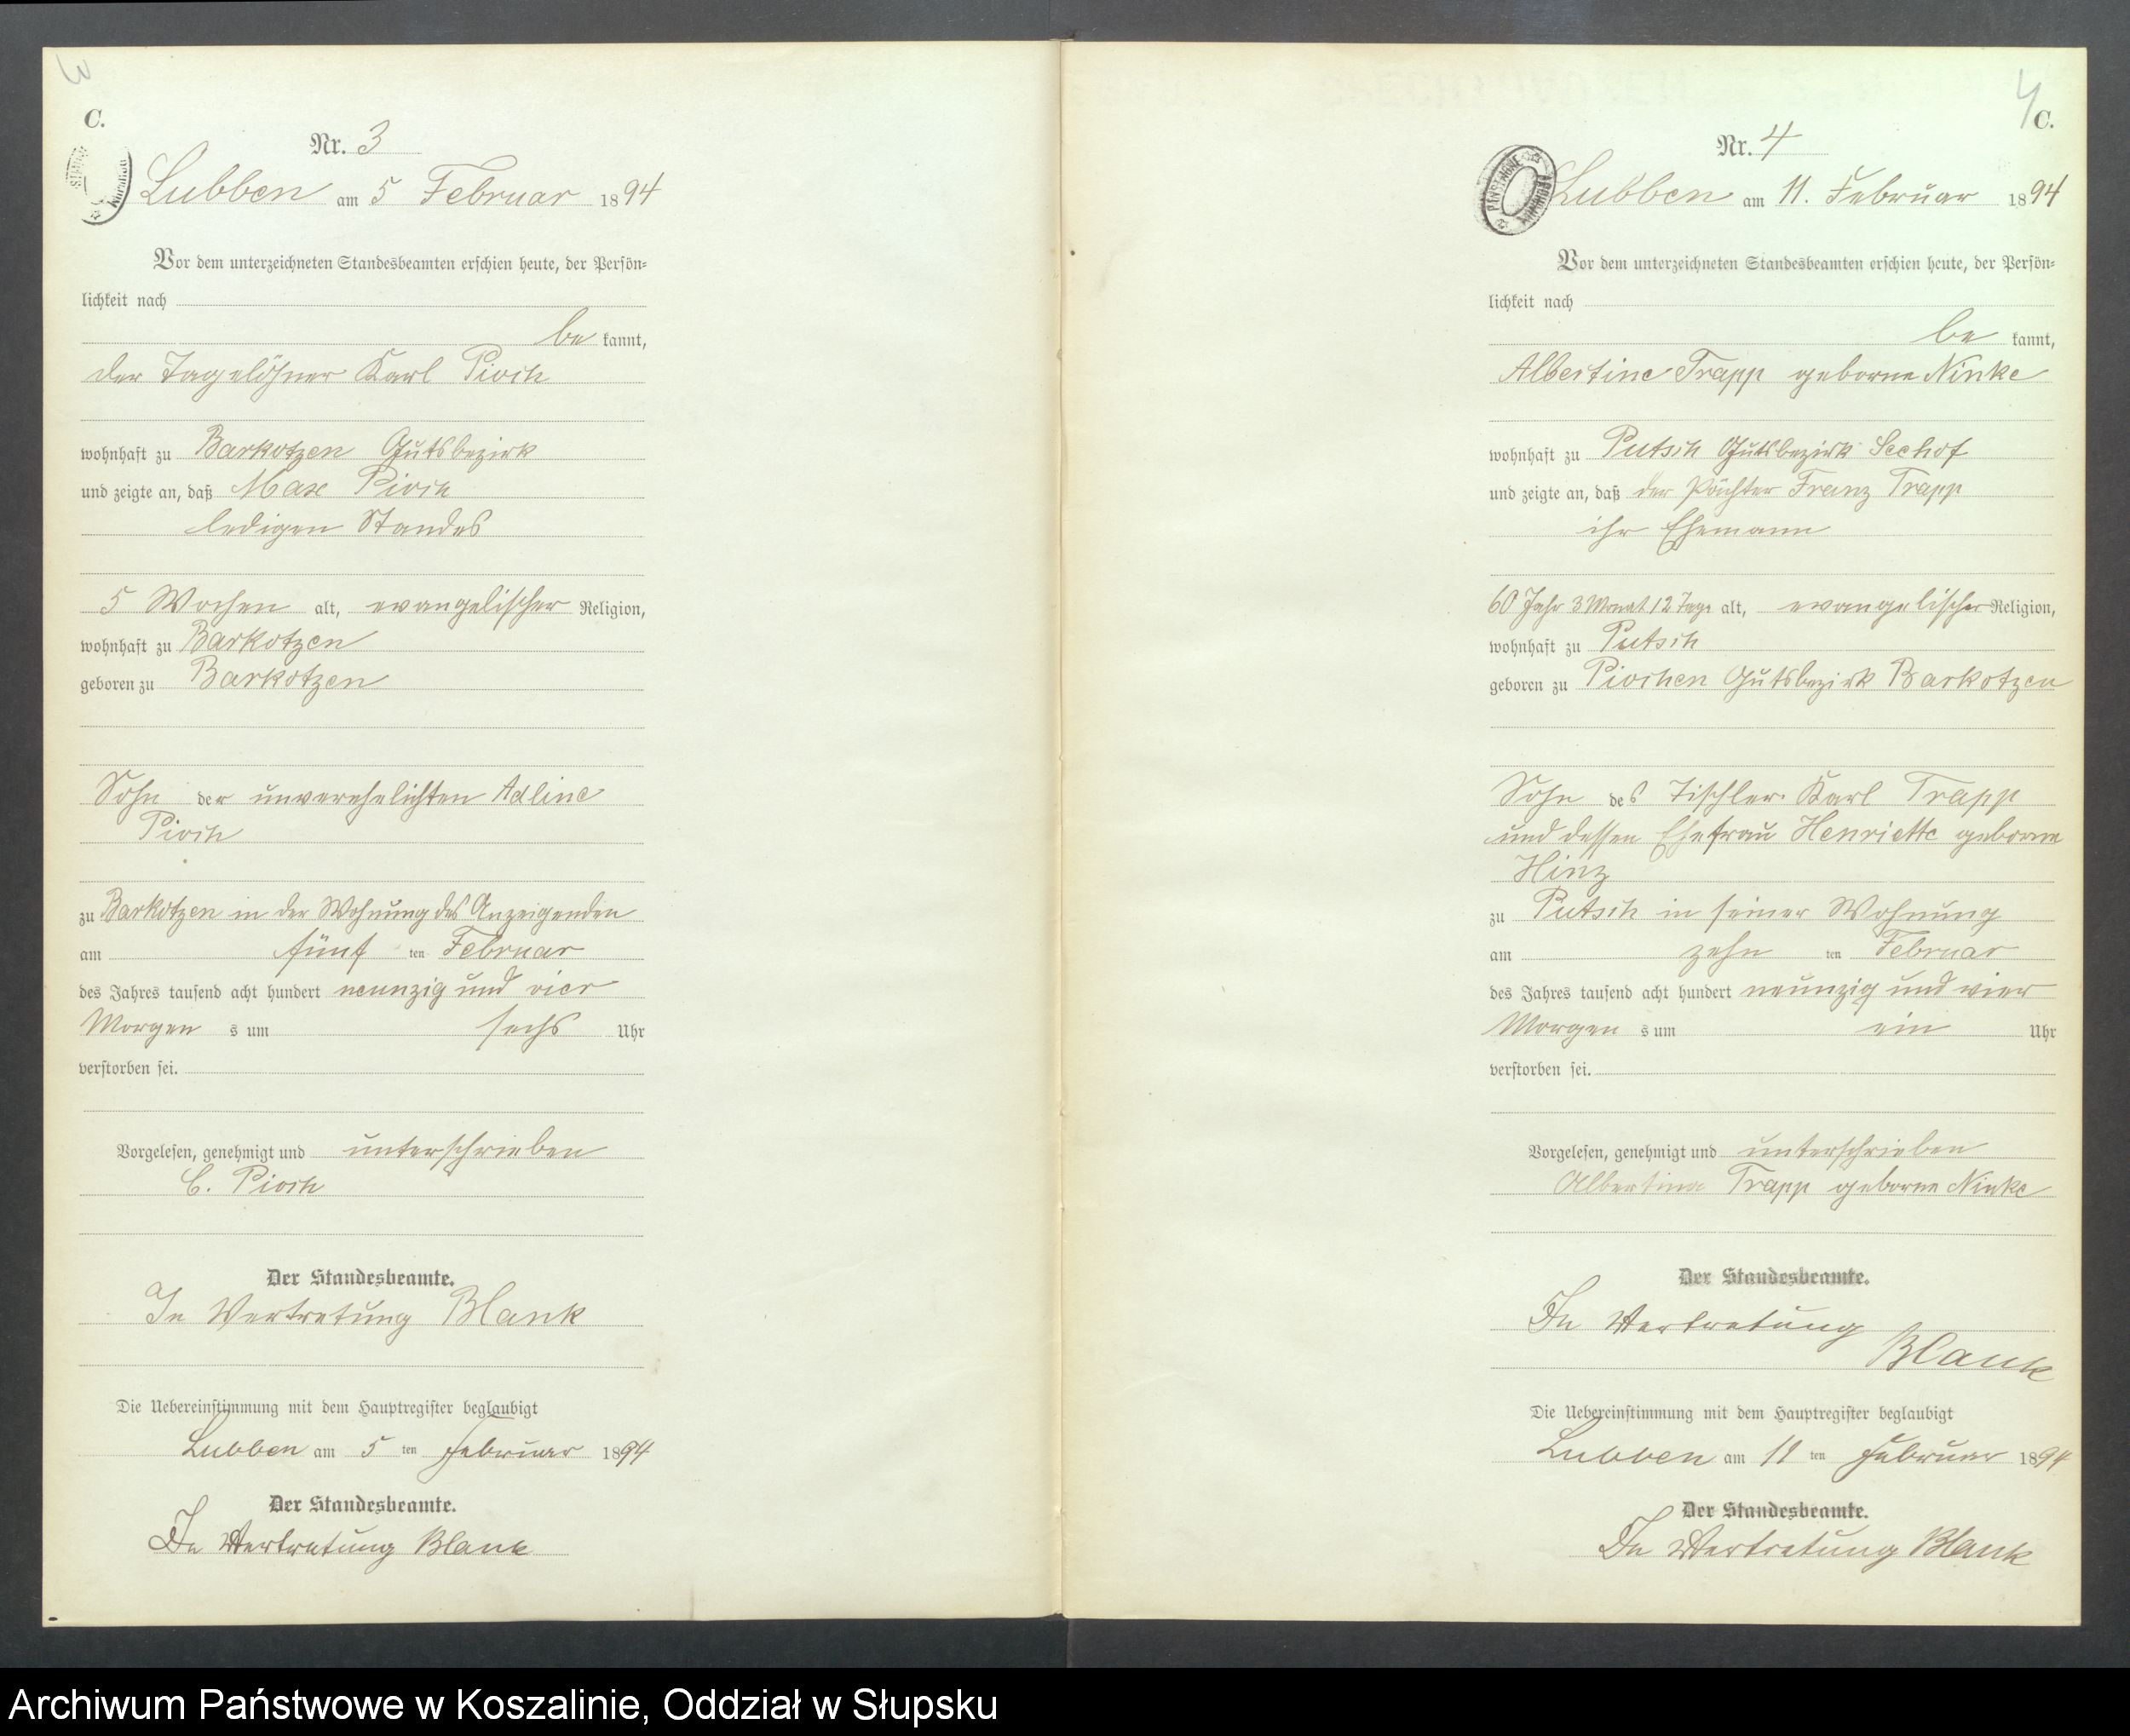 3
C.
Nr. 3
Lubben am 5 Februar 1894
Vor dem unterzeichneten Standesbeamten erschien heute, der Persön-
lichkeit nach
be kannt,
der Tagelöhner Karl Pioch
wohnhaft zu Barkotzen Gutsbezirk
und zeigte an, daß Max Pioch
ledigen Standes
5 Wochen alt, evangelischer Religion,
wohnhaft zu Barkotzen
geboren zu Barkotzen
Sohn der unverehelichten Adline
Pioch
zu Barkotzen in der Wohnung des Anzeigenden
am fünf ten Februar
des Jahres tausend acht hundert neunzig und vier
Morgen s um sechs Uhr
verstorben sei.
Vorgelesen, genehmigt und unterschrieben
C. Pioch
Der Standesbeamte.
In Vertretung Blank
Die Uebereinstimmung mit dem Hauptregister beglaubigt
Lubben am 5 ten Februar 1894
Der Standesbeamte.
In Vertretung Blank
4
C.
Nr. 4
Lubben am 11. Februar 1894
Vor dem unterzeichneten Standesbeamten erschien heute, der Persön-
lichkeit nach
be kannt,
Albertine Trapp geborne Ninke
wohnhaft zu Putsch Gutsbezirk Seehof
und zeigte an, daß der Pächter Franz Trapp
ihr Ehemann
60 Jahr 3 Monat 12 Tage alt, evangelischer Religion,
wohnhaft zu Putsch
geboren zu Piochen Gutsbezirk Barkotzen
Sohn des Tischler Karl Trapp
und dessen Ehefrau Henriette geborne
Hinz
zu Putsch in seiner Wohnung
am zehn ten Februar
des Jahres tausend acht hundert neunzig und vier
Morgen s um ein Uhr
verstorben sei.
Vorgelesen, genehmigt und unterschrieben
Albertine Trapp geborne Ninke
Der Standesbeamte.
In Vertretung
Blank
Die Uebereinstimmung mit dem Hauptregister beglaubigt
Lubben am 11 ten Februar 1894
Der Standesbeamte.
In Vertretung Blank
Archiwum Państwowe w Koszalinie, Oddział w Słupsku